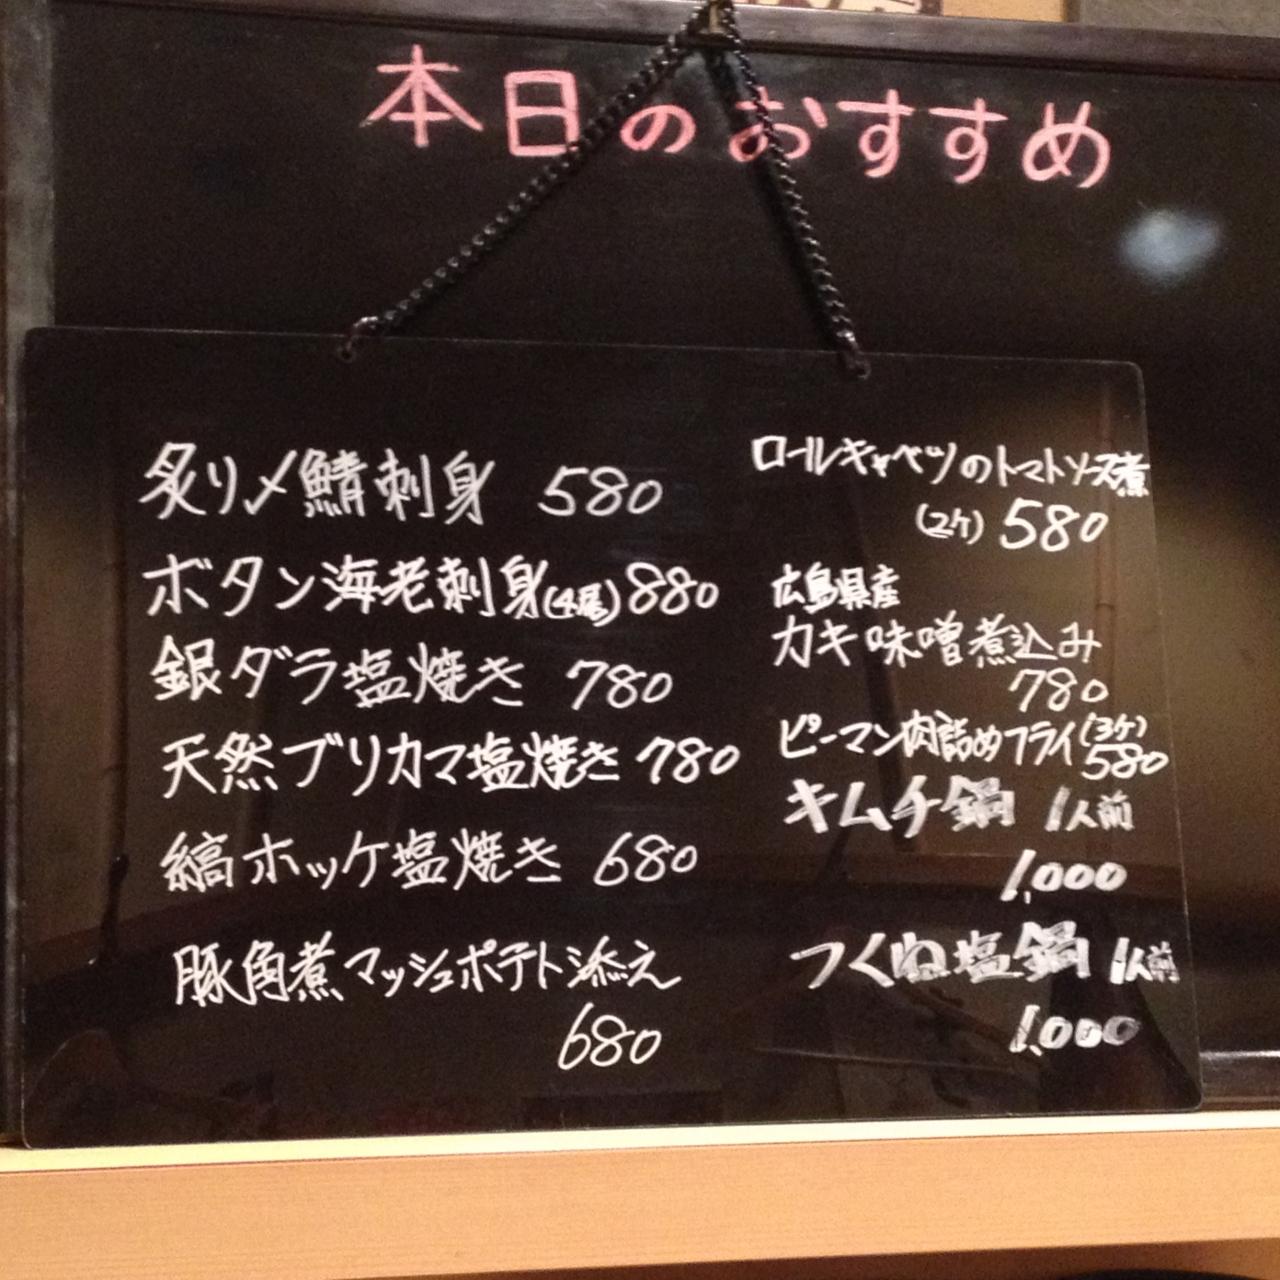 本日のおすすめ
炙り〆鯖刺身 580
ボタン海老刺身(4尾) 880
銀ダラ塩焼き 780
天然ブリカマ塩焼き 780
縞ホッケ塩焼き 680
豚角煮マッシュポテト添え
680
ロールキャベツのトマトソース煮
(2ケ) 580
広島県産
カキ味噌煮込み
780
ピーマン肉詰めフライ(3ケ)
580
キムチ鍋 1人前
1,000
つくね塩鍋 1人前
1,000